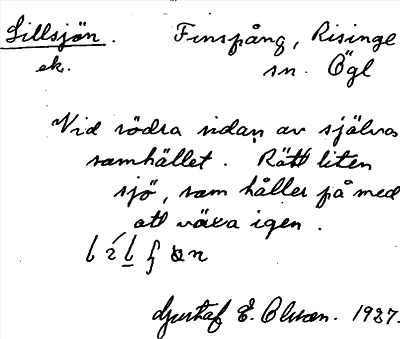 Lillsjön. Finspång, Risinge
ek. sn. Ögl
Vid södra sidan av själva
samhället. Rätt liten
sjö, som håller på med
att växa igen.
Gustaf E. Olsson. 1937.